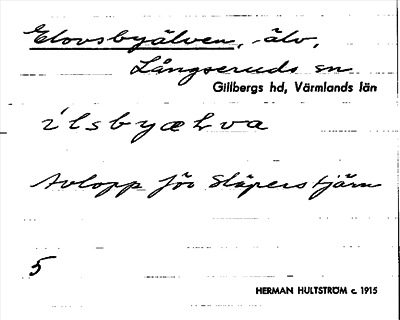 Elovsbyälven, älv,
Långseruds sn
Gillbergs hd, Värmlands län
ilsbyælva
Avlopp för Släpers tjärn
5
HERMAN HULTSTRÖM c. 1915